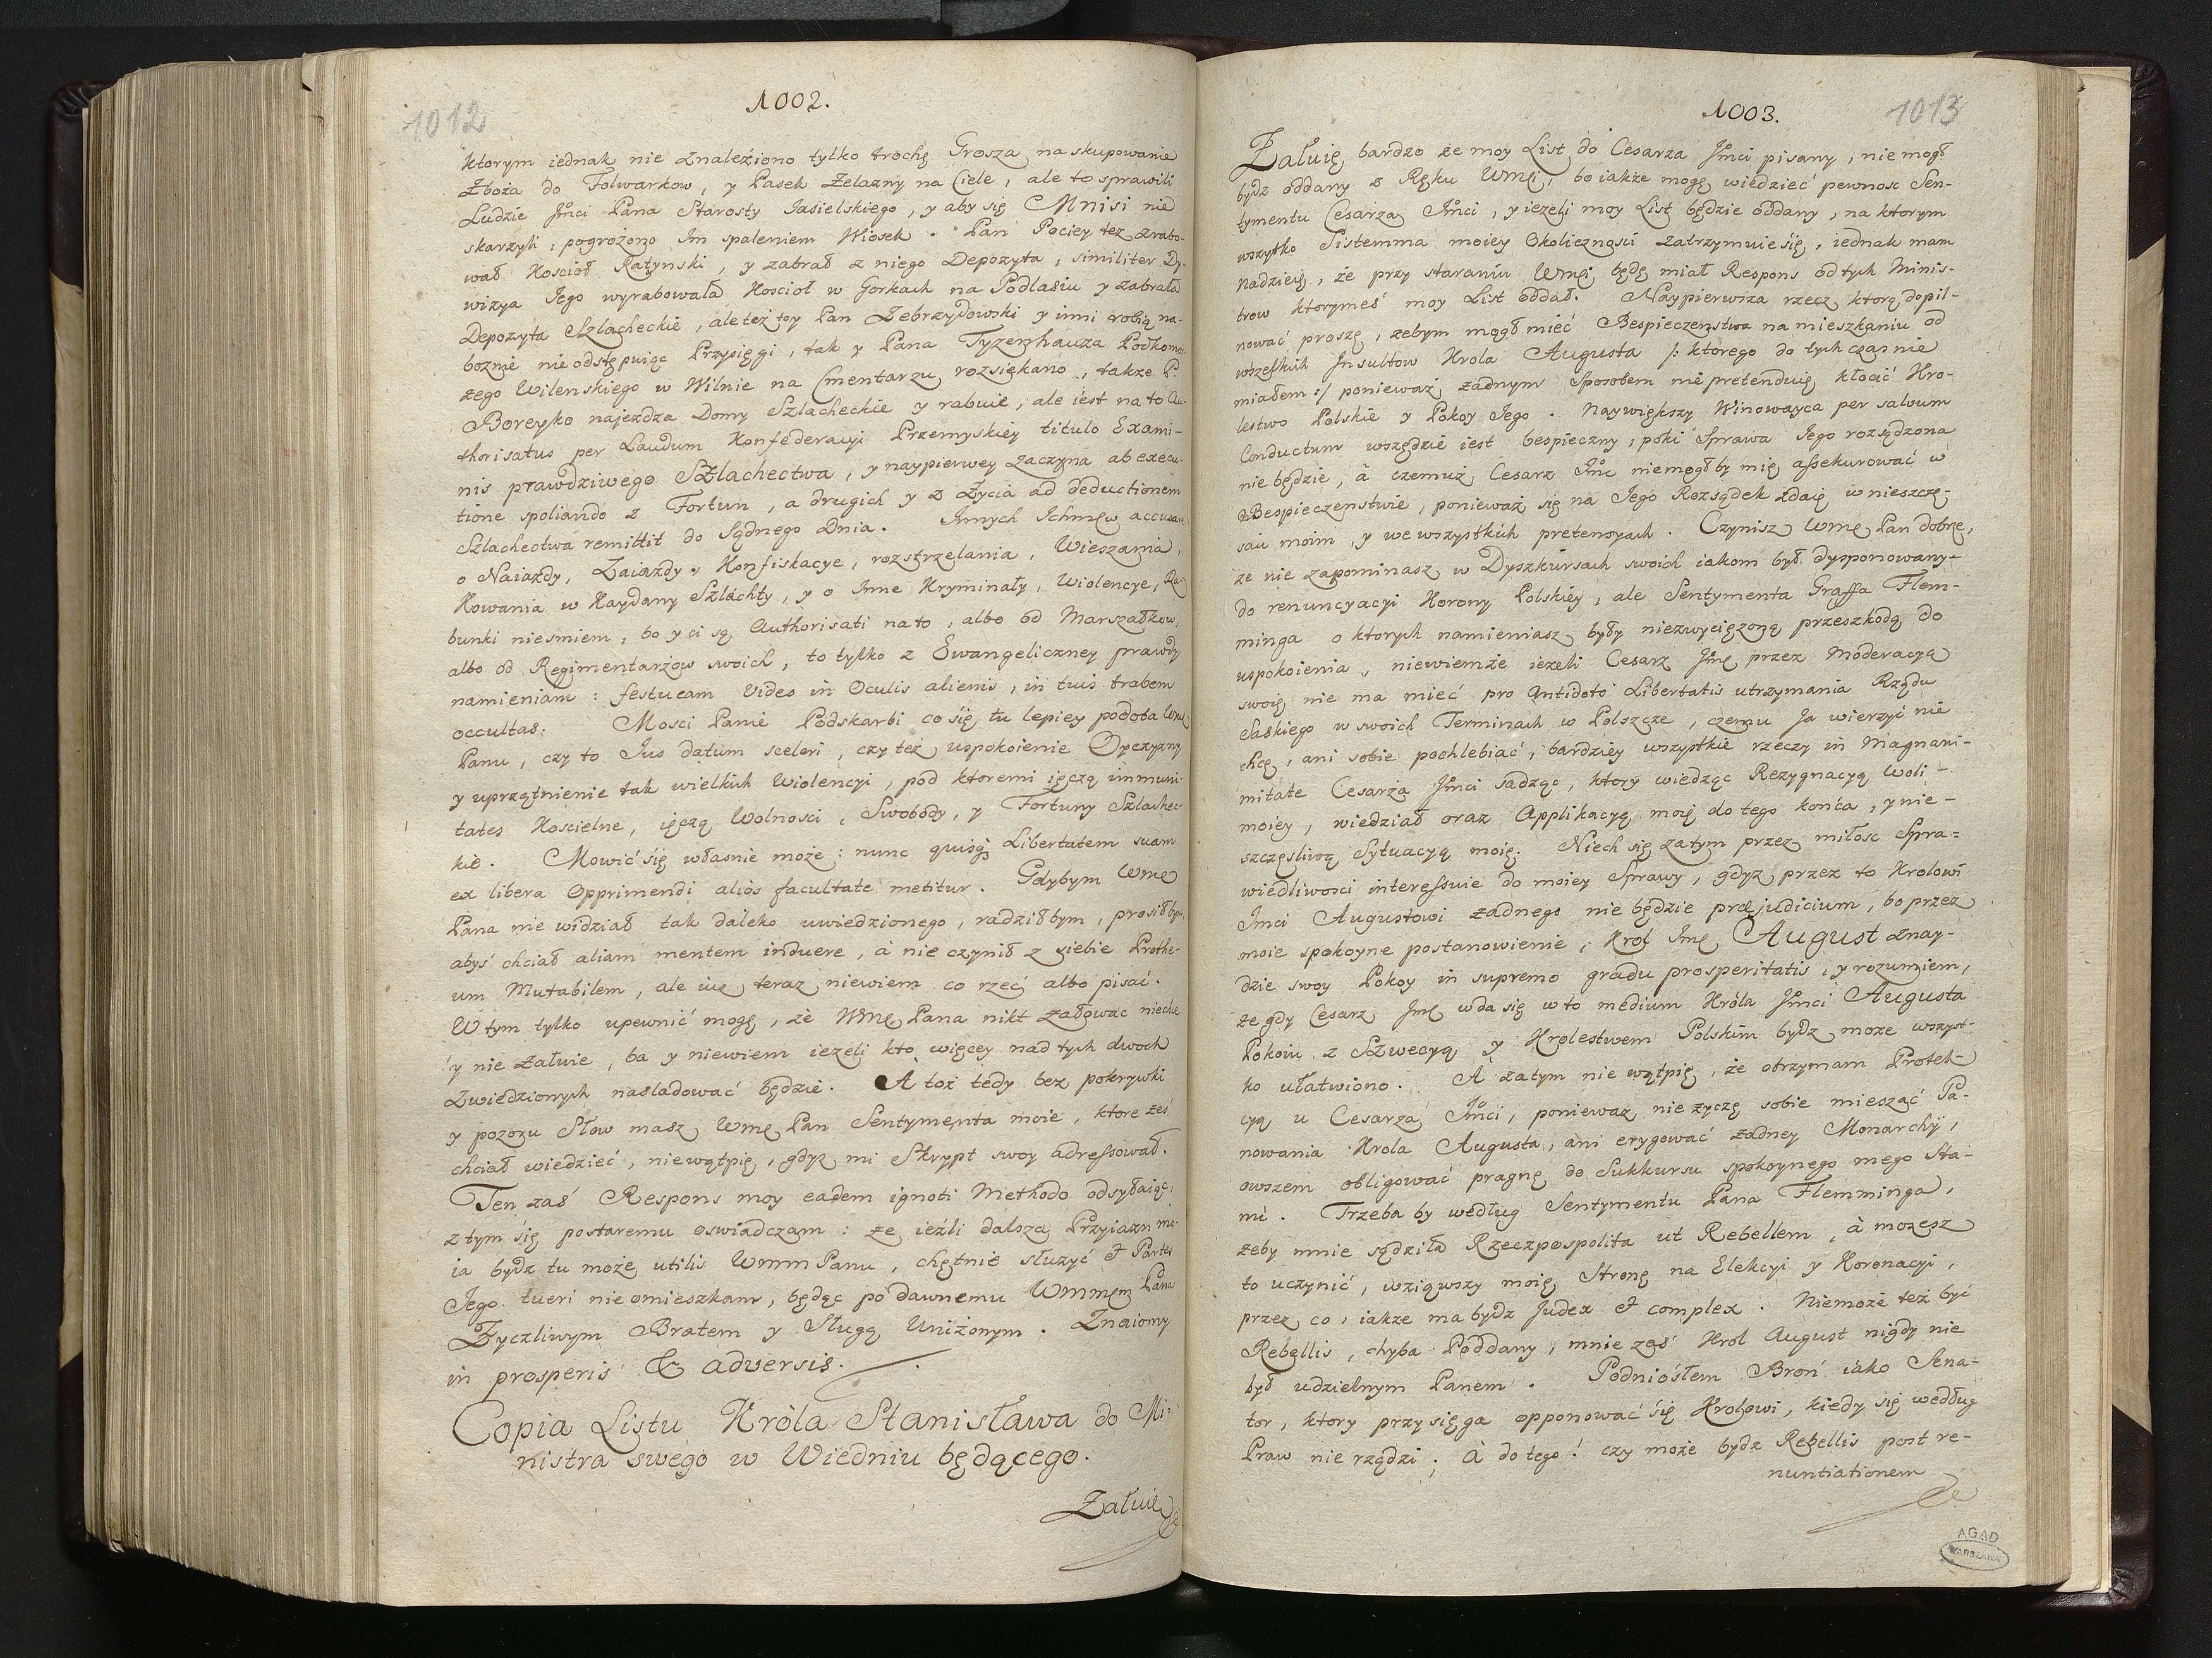 1012
1002.
ktorym iednak nie znaleźiono tylko trochę Grosza na skupowanie
Zboża do Folwarkow, y Pasek Żelazny na Ciele, ale to sprawili
Ludzie Jmci Pana Starosty Jasielskiego, y aby się Mnisi nie
skarzyli, pogrożono Jm spaleniem Wiosek. Pan Pociey tez zrabo-
wał Kosciół Ratynski, y zabrał z niego Depozyta, similiter Dy-
wizya Jego wyrabowała Koscioł w Gorkach na Podlasiu y zabrała
Depozyta Szlacheckie, ale też toy Pan Zebrzydowski y inni robią na-
boznie nie odstępuiąc Przysięgi, tak y Pana Tyzenhauza Podkomo-
rzego Wilenskiego w Wilnie na Cmentarzu rozsiekano, takze P.
Boreyko najezdza Domy Szlacheckie y rabuie, ale iest na to Au-
thorisatus per Laudum Konfederacyi Przemyskiey titulo Exami-
nis prawdziwego Szlachectwa, y naypierwey zaczyna ab execu-
tione spoliando z Fortun, a drugich y z Życia ad deductionem
Szlachectwa remittit do Sądnego Dnia. Innych Ichmęw accusare
o Naiazdy, Zaiazdy, Konfiskacye, rozstrzelania, Wieszania,
Kowania w Kaydany Szlachty, y o Inne Kryminały, Wiolencye, Ra-
bunki niesmiem, bo y ci są Authorisati na to, albo od Marszałkow,
albo od Regimentarzow swoich, to tylko z Ewangeliczney prawdy
namieniam: festucam vides in Oculis alienis, in tuis trabem
occultas. Mosci Panie Podskarbi co się tu lepiey podoba Wmę
Panu, czy to Jus datum sceleri, czy tez uspokoienie Oyczyzny
y uprzątnienie tak wielkich Wiolencyi, pod ktoremi ięczą immuni-
tates Koscielne, ięczą Wolnosci, Swobody, y Fortuny Szlachec-
kie. Mowić się własnie może: nunc quisqȝ Libertatem suam
ex libera Opprimendi alios facultate metitur. Gdybym Wmę
Pana nie widział tak daleko uwiedzionego, radziłbym, prosiłbym,
abyś chciał aliam mentem induere, à nie czynił z siebie Prothe-
um Mutabilem, ale iuz teraz niewiem co rzec albo pisać.
W tym tylko upewnić mogę, że Wmę Pana nikt załowac niechce
y nie załuie, ba y niewiem iezeli kto więcey nad tych dwoch
Zwiedzionych nasladować będzie. A toż tedy bez pokrywki
y pozoru Słow masz Wmę Pan Sentymenta moie, ktore żeś
chciał wiedzieć, niewątpię, gdyz mi Skrypt swoy adressował.
Ten zaś Respons moy eadem ignoti Methodo odsyłaiąc,
z tym się postaremu oswiadczam: ze ieżli dalsza Przyiazn mo-
ia bydz tu może utilis Wmm Panu, chętnie słuzyć et Partes
Jego tueri nie omieszkam, będąc po dawnemu Wmmęm Pana
Życzliwym Bratem y Sługą Uniżonym. Znaiomy
in prosperis & adversis.
Copia Listu Króla Stanisława do Mi-
nistra swego w Wiedniu będącego.
Załuię
1003.
1013
Załuię bardzo że moy List do Cesarza Jmci pisany, nie mogł
bydz oddany z Ręku Wmęi, bo iakze mogę wiedzieć pewnosc Sen-
tymentu Cesarza Jmci, y iezeli moy List będzie oddany, na ktorym
wszytko Sistemma moiey Okolicznosci zatrzymuie się, iednak mam
nadzieię, że przy staraniu Wmęi będę miał Respons od tych Minis-
trow ktorymeś moy List oddał. Naypierwsza rzecz ktorą dopil-
nować proszę, zebym mogł mieć Bespieczenstwa na mieszkaniu od
wszelkich Jnsultow Krola Augusta /: ktorego do tych czas nie
miałem :/ ponieważ żadnym Sposobem nie pretenduię kłocić Kro-
lestwo Polskie y Pokoy Jego. Naywiększy Winowayca per salvum
Conductum wszędzie iest bespieczny, poki Sprawa Jego rozsądzona
nie będzie, à czemuż Cesarz Jmć niemogłby mię assekurować w
Bespieczenstwie, ponieważ się na Jego Rozsądek zdaię w nieszczę-
sciu moim, y we wszystkich pretensyach. Czynisz Wmę Pan dobrze,
ze nie zapominasz w Dyszkursach swoich iakom był dysponowany-
do renuncyacyi Korony Polskiey, ale Sentymenta Graffa Flem-
minga o ktorych namieniasz były niezwyciężoną przeszkodą do
uspokoienia, niewiemże iezeli Cesarz Jmę przez Moderacyą
swoię nie ma mieć pro Antidoto Libertatis utrzymania Rządu
Saskiego w swoich Terminach w Polszcze, czemu Ja wierzyć nie
chcę, ani sobie pochlebiać, bardziey wszystkie rzeczy in Magnani-
mitate Cesarza Jmci sadząc, ktory wiedząc Rezygnacyą Woli-
moiey, wiedział oraz Applikacyą moię do tego końca, y nie-
szczęsliwą Sytuacyą moię. Niech się zatym przez miłosc Spra-
wiedliwosci interessuie do moiey Sprawy, gdyz przez to Krolowi
Jmci Augustowi żadnego nie będzie præjudicium, bo przez
moie spokoyne postanowienie, Krol Jmę August znay-
dzie swoy Pokoy in supremo gradu prosperitatis, y rozumiem,
że gdy Cesarz Jmę wda się w to medium Króla Jmci Augusta
Pokoiu z Szwecyą y Krolestwem Polskim bydz moze wszyst-
ko ułatwiono. A zatym nie wątpię, że otrzymam Protek-
cyą u Cesarza Jmci, poniewaz nie zyczę sobie mieszać Pa-
nowania Krola Augusta, ani erygować żadney Monarchÿ,
owszem obligować pragnę do Sukkursu spokoynego mego Sta-
nu. Trzeba by według Sentymentu Pana Flemminga,
żeby mnie sądziła Rzeczpospolita ut Rebellem, à mozesz
to uczynić, wziąwszy moię Stronę na Elekcyi y Koronacyi,
przez co, iakze ma bydz Judex et complex. Niemoże też być
Rebellis, chyba Poddany, mnie zaś Krol August nigdy nie
był udzielnym Panem. Podniósłem Broń iako Sena-
tor, ktory przysięga opponować się Krolowi, kiedy się według
Praw nie rządzi; À do tego! czy może bydz Rebellis post re-
nuntiationem
AGAD
WARSZAWA